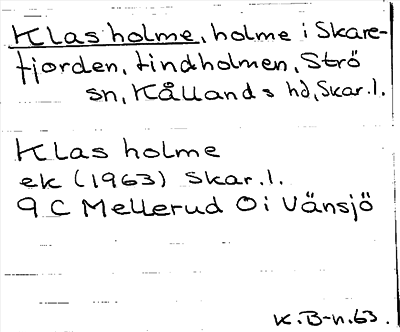 Klas holme, holme i Skare-
fjorden, tindholmen, Strö
sn, Kållands hd, Skar.l.
Klas holme
ek (1963) Skar.l.
9 C Mellerud Ö i Vänsjö
K.B-n.63.